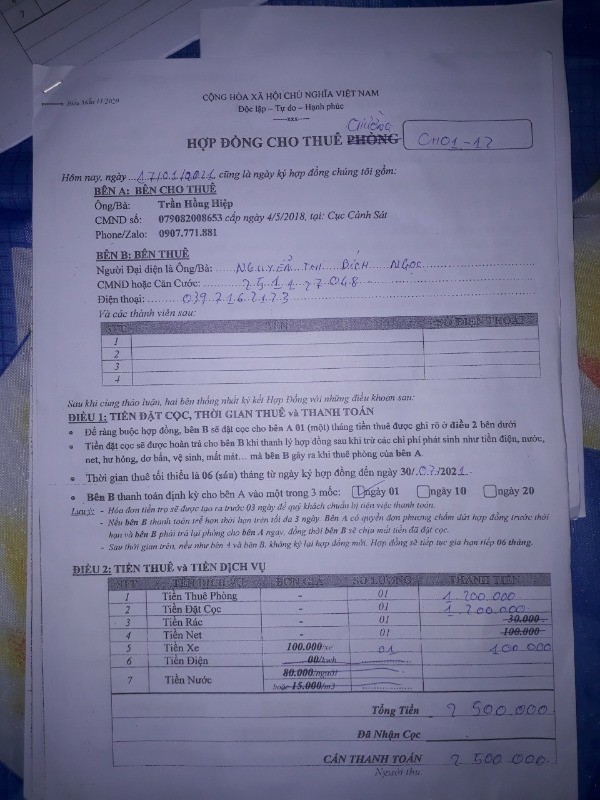 Biểu Mẫu 11/2020
CỘNG HÒA XÃ HỘI CHỦ NGHĨA VIỆT NAM
Độc lập – Tự do – Hạnh phúc
-----xxx-----
Chuồng
HỢP ĐỒNG CHO THUÊ PHÒNG
CH01-12
Hôm nay, ngày ...17/01/2021 cũng là ngày ký hợp đồng chúng tôi gồm:
BÊN A: BÊN CHO THUÊ
Ông/Bà: Trần Hồng Hiệp
CMND số: 079082008653 cấp ngày 4/5/2018, tại: Cục Cảnh Sát
Phone/Zalo: 0907.771.881
BÊN B: BÊN THUÊ
Người Đại diện là Ông/Bà: NGUYỄN THỊ BÍCH NGỌC
CMND hoặc Căn Cước: 251127048
Điện thoại: 0392162123
Và các thành viên sau:
STT TÊN SỐ ĐIỆN THOẠI
1
2
3
4
Sau khi cùng thảo luận, hai bên thống nhất ký kết Hợp Đồng với những điều khoản sau:
ĐIỀU 1: TIỀN ĐẶT CỌC, THỜI GIAN THUÊ và THANH TOÁN
• Để ràng buộc hợp đồng, bên B sẽ đặt cọc cho bên A 01 (một) tháng tiền thuê được ghi rõ ở điều 2 bên dưới
• Tiền đặt cọc sẽ được hoàn trả cho bên B khi thanh lý hợp đồng sau khi trừ các chi phí phát sinh như tiền điện, nước,
net, hư hỏng, dơ bẩn, vệ sinh, mất mát… mà bên B gây ra khi thuê phòng của bên A.
• Thời gian thuê tối thiểu là 06 (sáu) tháng từ ngày ký hợp đồng đến ngày 30/.07./2021.
• Bên B thanh toán định kỳ cho bên A vào một trong 3 mốc: ngày 01 ngày 10 ngày 20
Lưu ý: - Hóa đơn tiền trọ sẽ được tạo ra trước 03 ngày để quý khách chuẩn bị tiền việc thanh toán.
- Nếu bên B thanh toán trễ hơn thời hạn trên tối đa 3 ngày. Bên A có quyền đơn phương chấm dứt hợp đồng trước thời
hạn và bên B phải trả lại phòng cho bên A ngay, đồng thời bên B sẽ chịu mất tiền đã đặt cọc.
- Sau thời gian trên, nếu như bên A và bên B, không ký lại hợp đồng mới. Hợp đồng sẽ tiếp tục gia hạn tiếp 06 tháng.
ĐIỀU 2: TIỀN THUÊ và TIỀN DỊCH VỤ
STT TÊN DỊCH VỤ ĐƠN GIÁ SỐ LƯỢNG THÀNH TIỀN
1 Tiền Thuê Phòng - 01 1.200.000
2 Tiền Đặt Cọc - 01 1.200.000
3 Tiền Rác - 01 30.000
4 Tiền Net - 01 100.000
5 Tiền Xe 100.000/xe 01 100.000
6 Tiền Điện 00/kwh
7 Tiền Nước 80.000/người
hoặc 15.000/m3
Tổng Tiền 2 500.000
Đã Nhận Cọc
CẦN THANH TOÁN 2 500.000
Người thu: